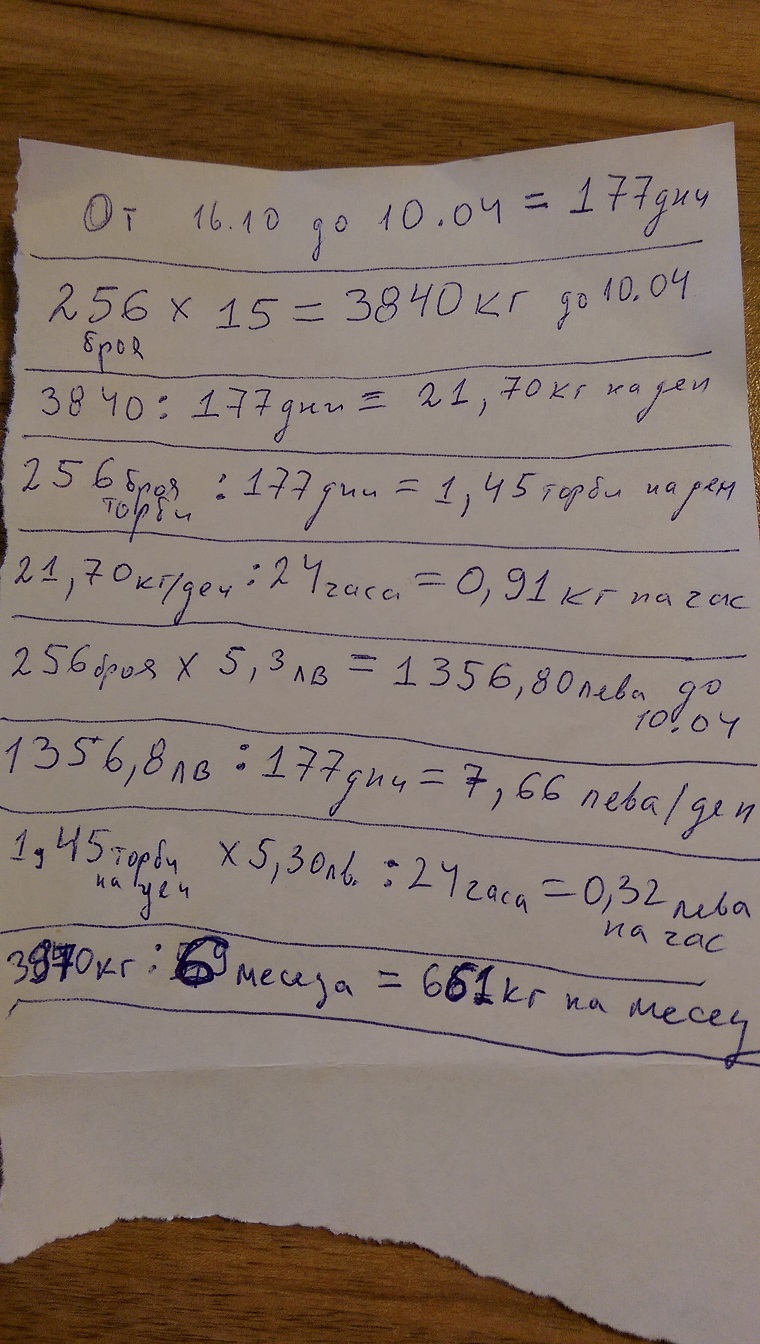 От 16.10 до 10.04 = 177 дни
256 x 15 = 3840 кг до 10.04
броя
3840 : 177 дни = 21,70 кг на ден
256 броя : 177 дни = 1,45 торби на ден
торби
21,70 кг/ден : 24 часа = 0,91 кг на час
256 броя x 5,3 лв = 1356,80 лева до
10.04
1356,8 лв : 177 дни = 7,66 лева/ден
1,45 торби x 5,30 лв. : 24 часа = 0,32 лева
на ден на час
3970 кг : 6 месеца = 661 кг на месец